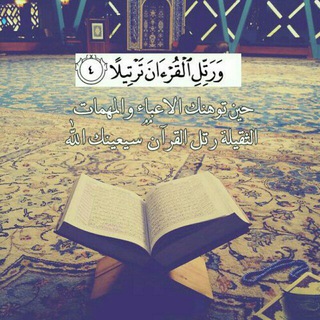 وَرَتِّلِ ٱلْقُرْءَانَ تَرْتِيلًا ٤
حين توهنك الأعباء والمهمات
الثقيلة رتل القرآن سيعينك الله